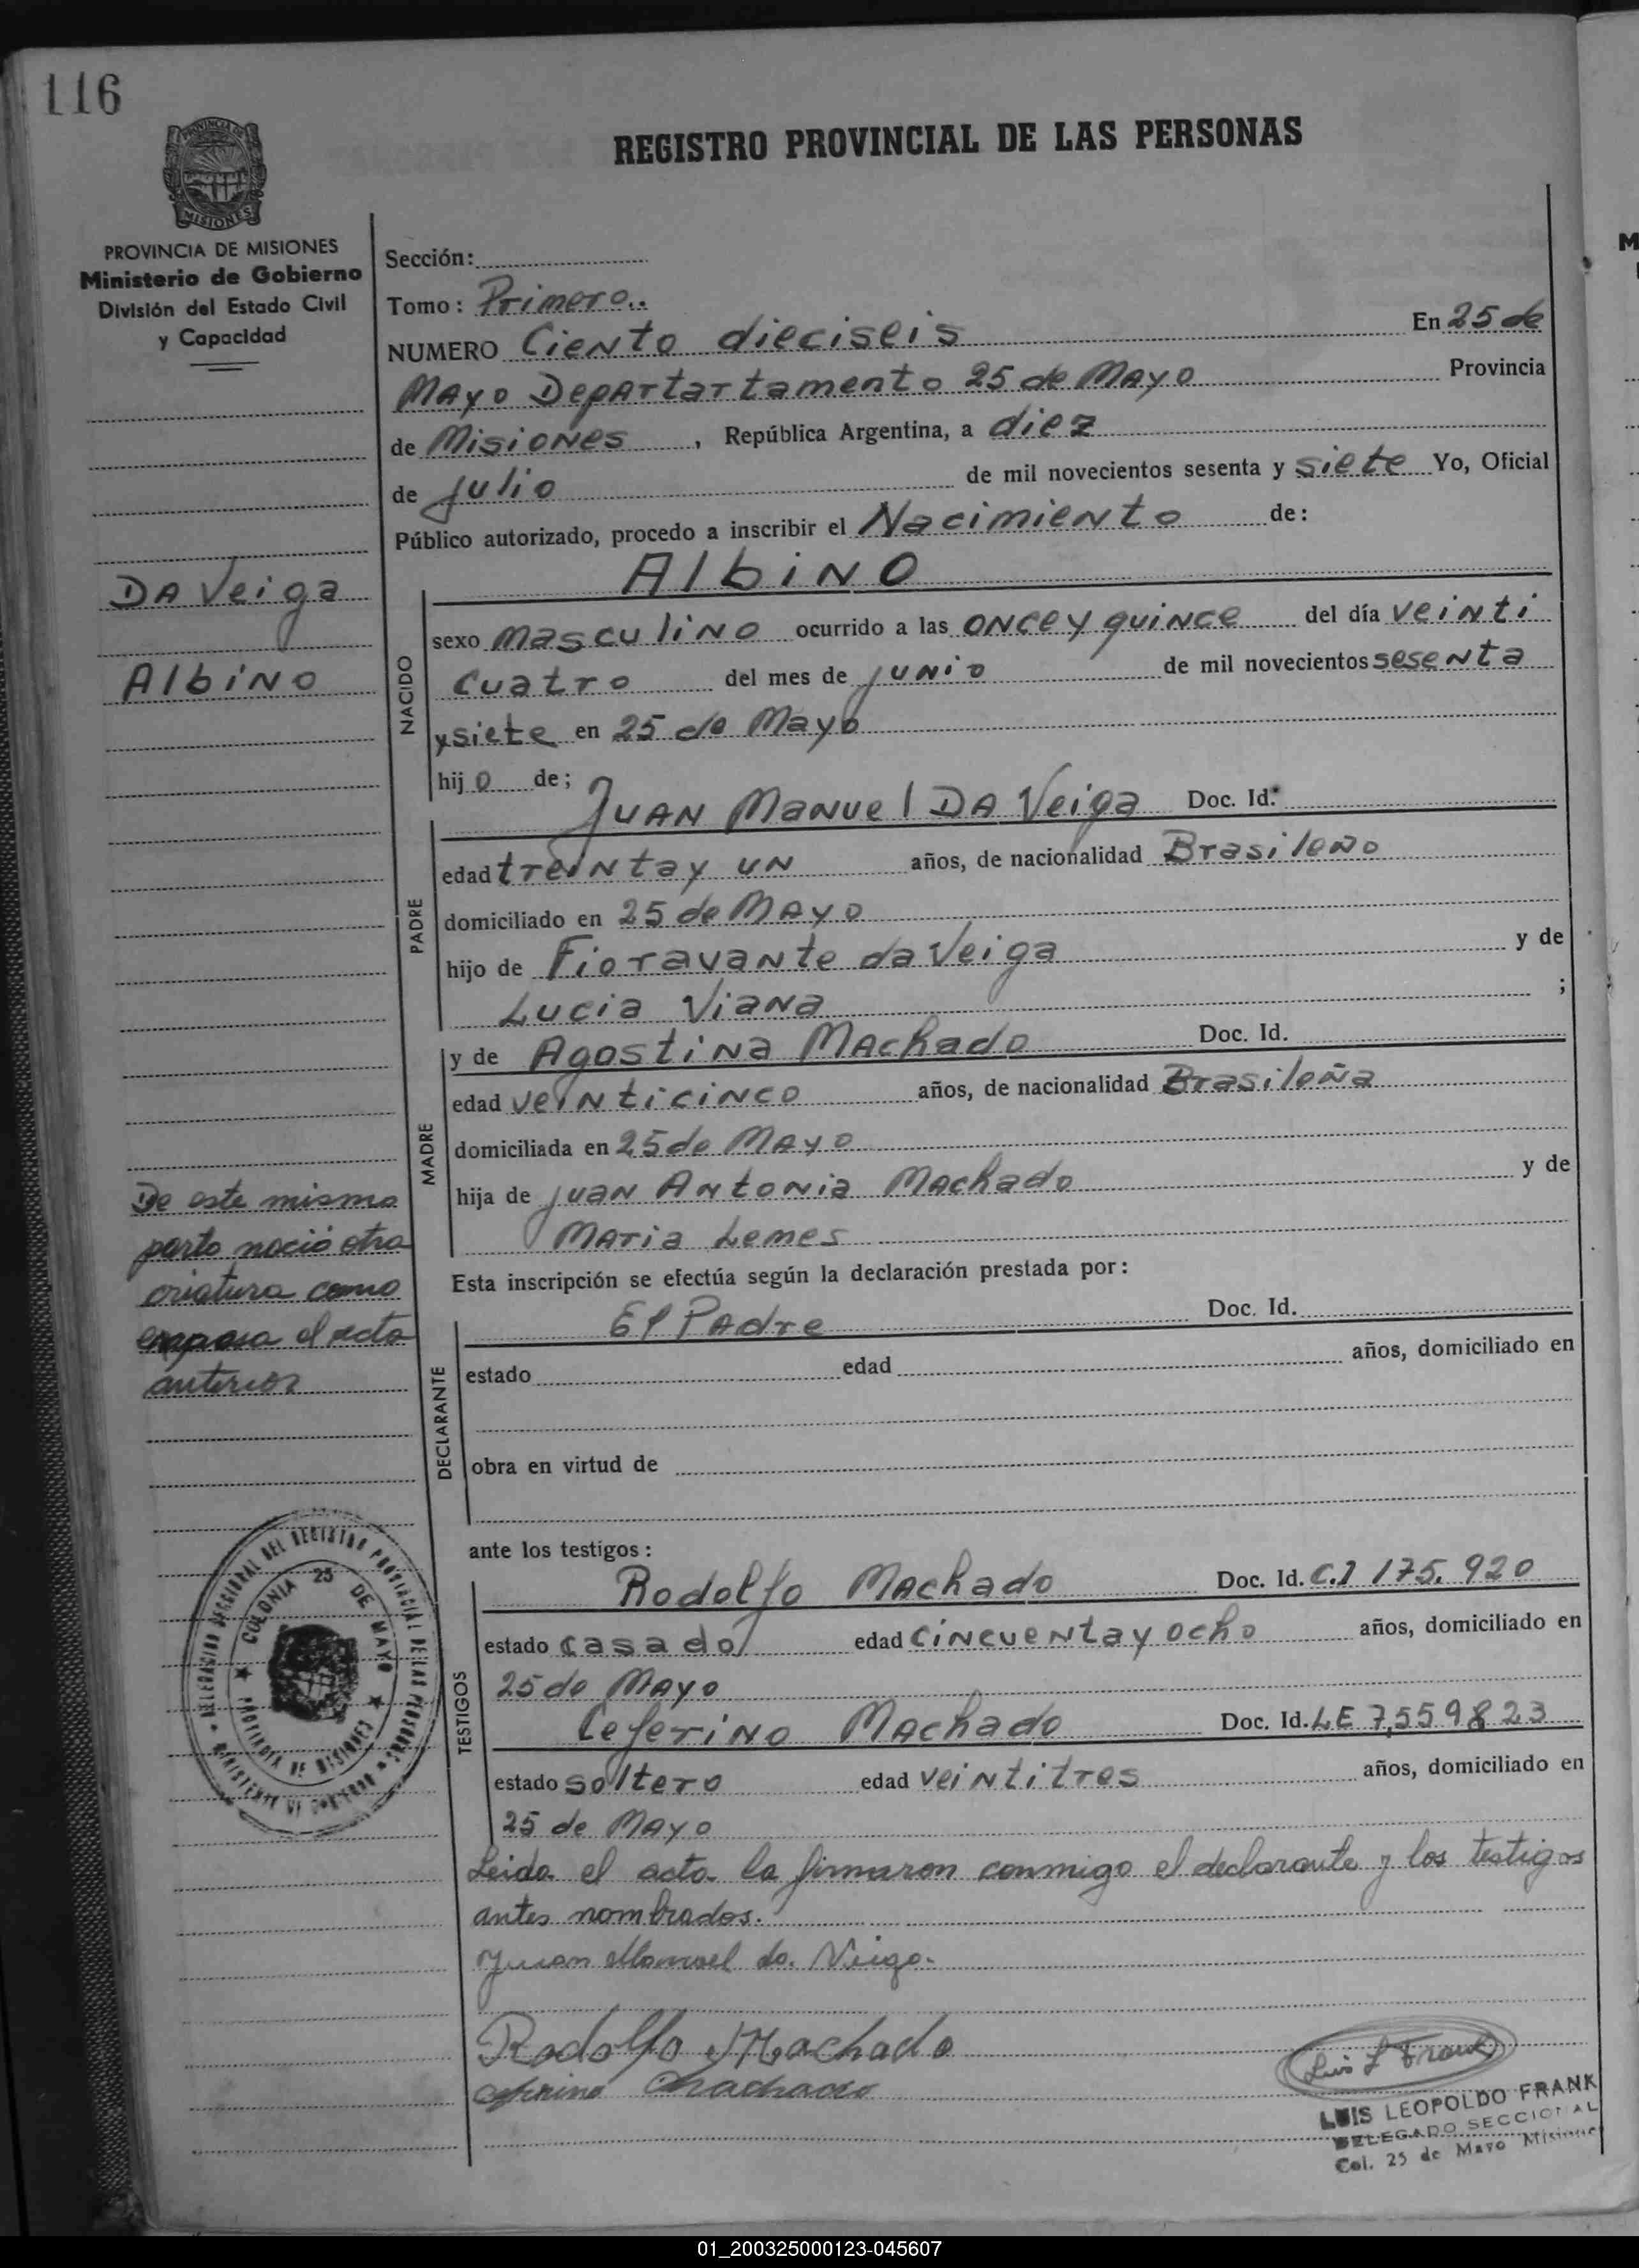 116
REGISTRO PROVINCIAL DE LAS PERSONAS
PROVINCIA DE
MISIONES
PROVINCIA DE MISIONES
Ministerio de Gobierno
División del Estado Civil
y Capacidad
Sección:
Tomo: Primero
NUMERO Ciento dieciseis En 25 de
Mayo Departartamento 25 de Mayo Provincia
de Misiones, República Argentina, a diez
de Julio de mil novecientos sesenta y siete Yo, Oficial
Público autorizado, procedo a inscribir el Nacimiento de:
Albino
DA Veiga
Albino
NACIDO
sexo masculino ocurrido a las once y quince del día veinti
cuatro del mes de junio de mil novecientos sesenta
y siete en 25 de Mayo
hijo de;
PADRE
Juan Manuel DA Veiga Doc. Id.
edad treinta y un años, de nacionalidad Brasileño
domiciliado en 25 de Mayo
hijo de Fioravante da Veiga y de
Lucia Viana ;
MADRE
y de Agostina Machado Doc. Id.
edad veinticinco años, de nacionalidad Brasileña
domiciliada en 25 de Mayo
hija de Juan Antonia Machado y de
Maria Lemes
De este mismo
parto nació otra
criatura como
expresa el acta
anterior
Esta inscripción se efectúa según la declaración prestada por:
DECLARANTE
El Padre Doc. Id.
estado edad años, domiciliado en
obra en virtud de
ante los testigos:
TESTIGOS
Rodolfo Machado Doc. Id. C.I 175.920
estado casado edad cincuenta y ocho años, domiciliado en
25 de Mayo
Ceferino Machado Doc. Id. LE 7,559823
estado soltero edad veintitres años, domiciliado en
25 de Mayo
DELEGACION SECCIONAL DEL REGISTRO PROVINCIAL DE LAS PERSONAS
MINISTERIO DE GOBIERNO
COLONIA 25 DE MAYO
PROVINCIA DE MISIONES
Leida el acta la firmaron conmigo el declarante y los testigos
antes nombrados.
Juan Manuel da Veiga
Rodolfo Machado
Ceferino Machado
Luis L Frank
LUIS LEOPOLDO FRANK
DELEGADO SECCIONAL
Col. 25 de Mayo Misiones
01_200325000123-045607